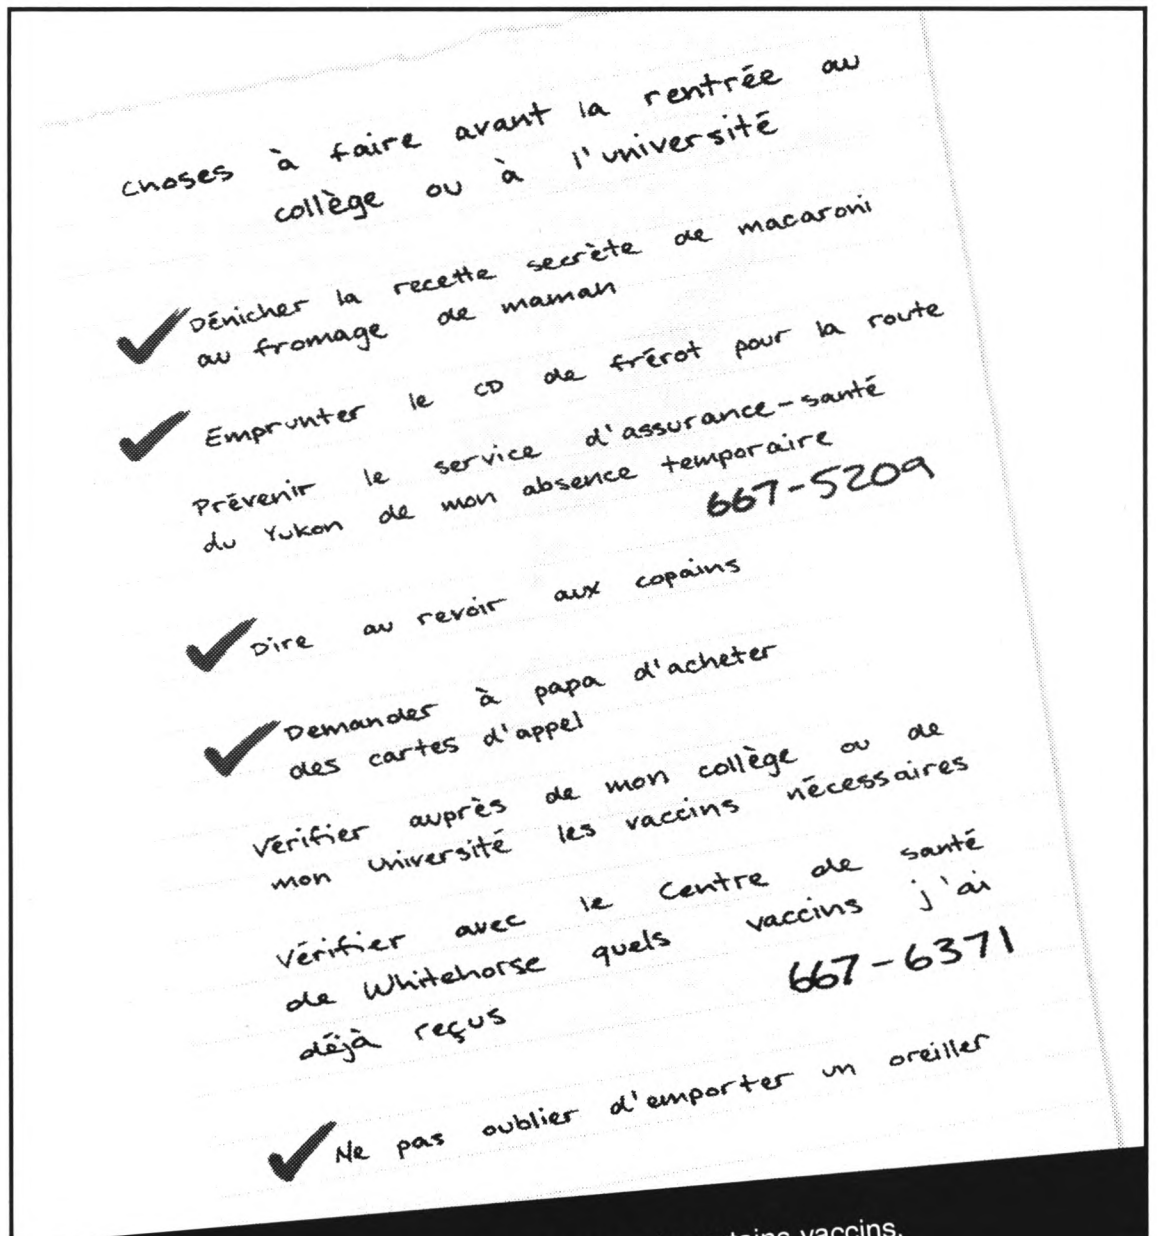 choses à faire avant la rentrée au
collège ou à l'université
Dénicher la recette secrète de macaroni
au fromage de maman
Emprunter le CD de frérot pour la route
Prévenir le service d'assurance-santé
du Yukon de mon absence temporaire
667-5209
Dire au revoir aux copains
Demander à papa d'acheter
des cartes d'appel
Vérifier auprès de mon collège ou de
mon université les vaccins nécessaires
Vérifier avec le Centre de santé
de Whitehorse quels vaccins j'ai
déjà reçus
667-6371
Ne pas oublier d'emporter un oreiller
vaccins.